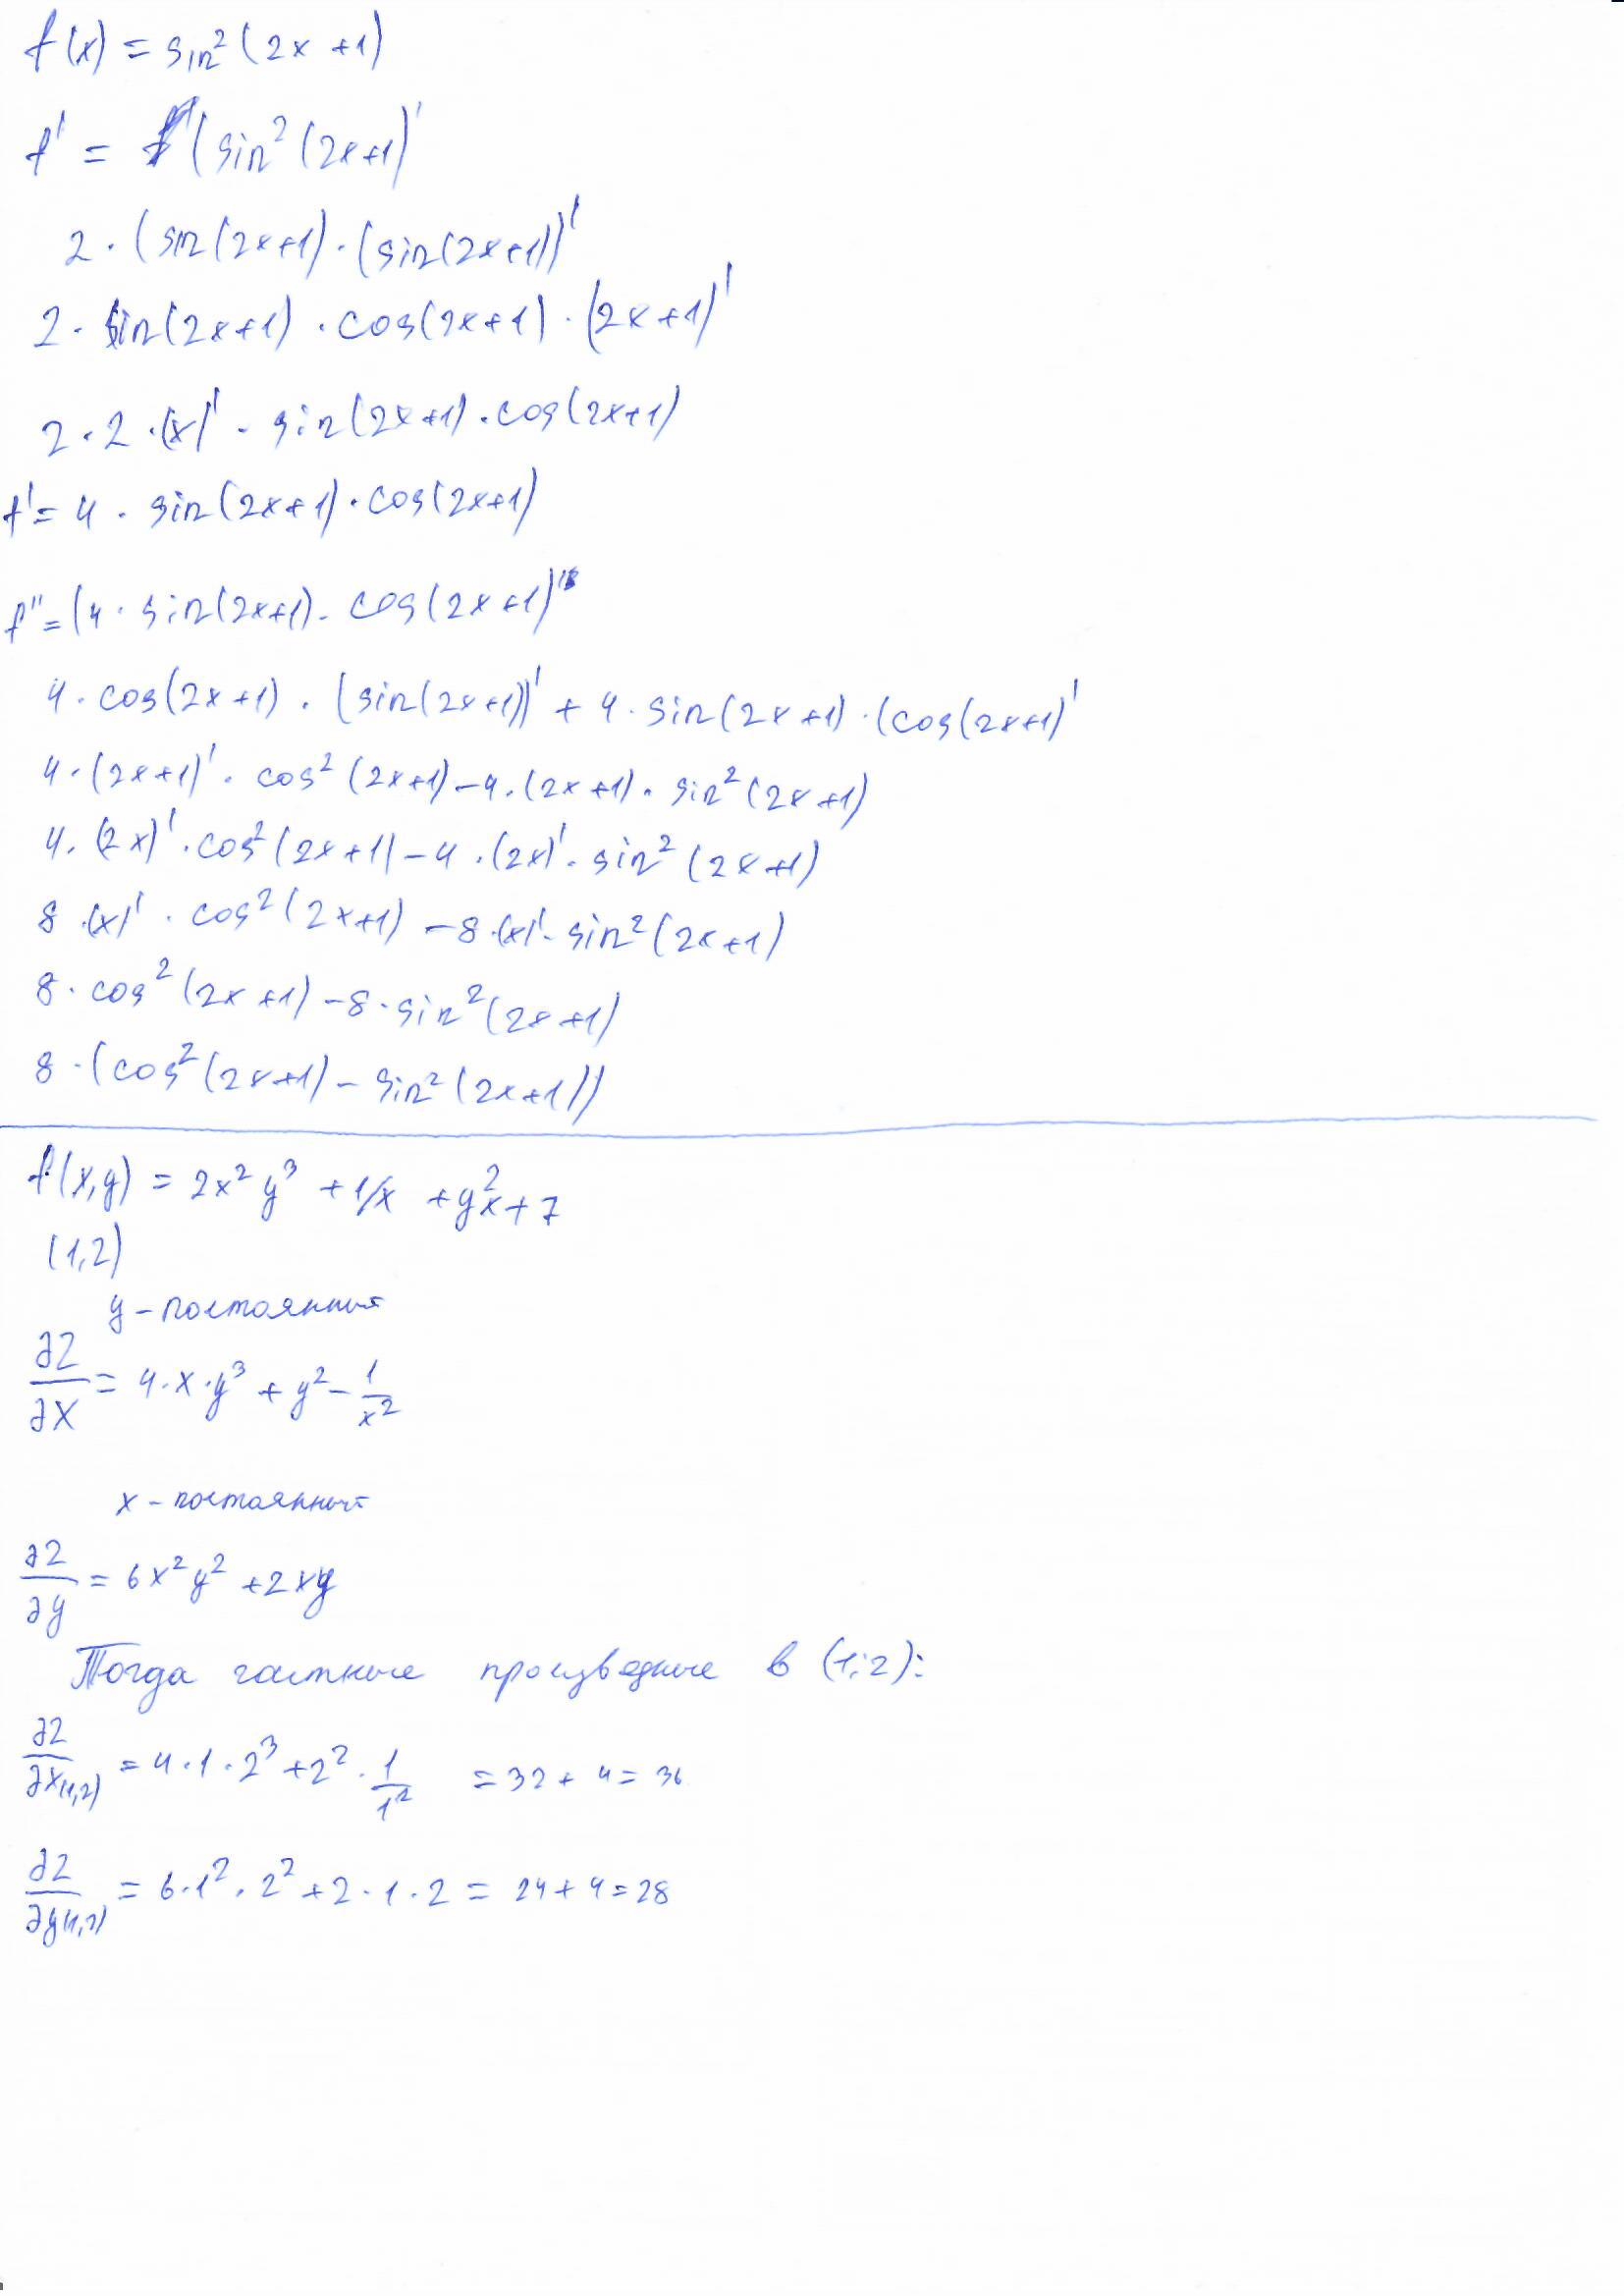 f(x) = sin²(2x+1)
f' = (sin²(2x+1)'
2·(sin(2x+1)·(sin(2x+1))'
2·sin(2x+1)·cos(2x+1)·(2x+1)'
2·2·(x)'·sin(2x+1)·cos(2x+1)
f' = 4·sin(2x+1)·cos(2x+1)
f'' = (4·sin(2x+1)·cos(2x+1)'
4·cos(2x+1)·(sin(2x+1))' + 4·sin(2x+1)·(cos(2x+1)'
4·(2x+1)'·cos²(2x+1) – 4·(2x+1)·sin²(2x+1)
4·(2x)'·cos²(2x+1) – 4·(2x)'·sin²(2x+1)
8·(x)'·cos²(2x+1) – 8·(x)'·sin²(2x+1)
8·cos²(2x+1) – 8·sin²(2x+1)
8·(cos²(2x+1) – sin²(2x+1))
f(x,y) = 2x²y³ + 1/x + y²x + 7
(1,2)
y – постоянная
∂z/∂x = 4·x·y³ + y² – 1/x²
x – постоянный
∂z/∂y = 6x²y² + 2xy
Тогда частные производные в (1;2):
∂z/∂x(1,2) = 4·1·2³ + 2² · 1/1² = 32 + 4 = 36
∂z/∂y(1,2) = 6·1²·2² + 2·1·2 = 24 + 4 = 28